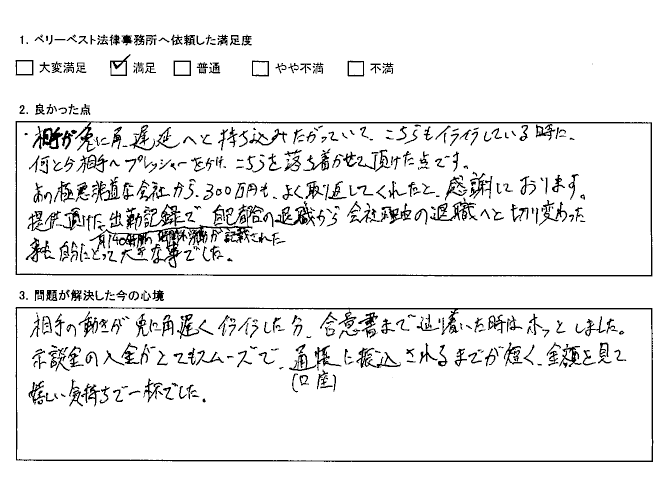 1. ベリーベスト法律事務所へ依頼した満足度
大変満足 満足 普通 やや不満 不満
2. 良かった点
・相手が兎に角、遅延へと持ち込みたがっていて、こちらもイライラしている時に、
何とか相手へプレッシャーをかけ、こちらを落ち着かせて頂けた点です。
あの極悪非道な会社から、300万円も、よく取り返してくれたと、感謝しております。
提供頂けた出勤記録で自己都合の退職から会社理由の退職へと切り変わった
月140時間の時間外労働が記載された
事も自分にとって大きな事でした。
3. 問題が解決した今の心境
相手の動きが兎に角遅くイライラした分、合意書まで辿り着いた時はホッとしました。
示談金の入金がとてもスムーズで、通帳に振込されるまでが短く、金額を見て
(口座)
嬉しい気持ちで一杯でした。